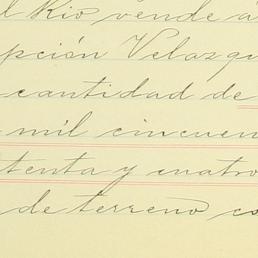 l Rio vende á
pción Velazqu
cantidad de
mil cincuen
tenta y cuatro
de terreno co